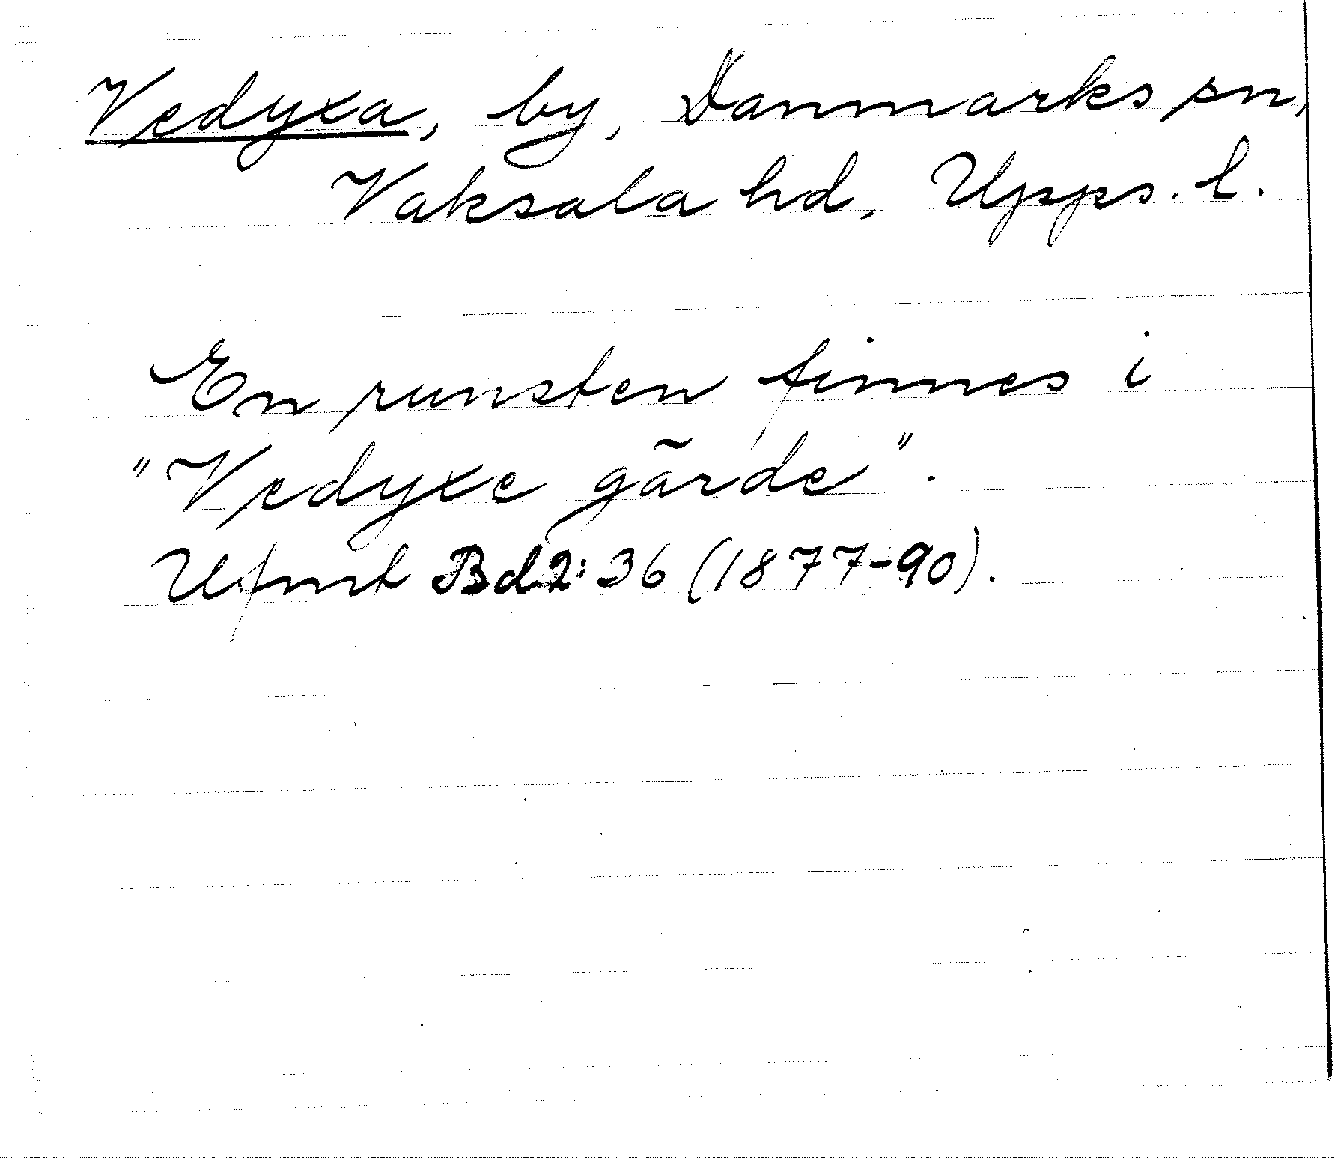 Vedyxa, by, Danmarks sn,
Vaksala hd, Upps. l.
En runsten finnes i
"Vedyxe gärde".
Ufmt Bd 2: 36 (1877-90).